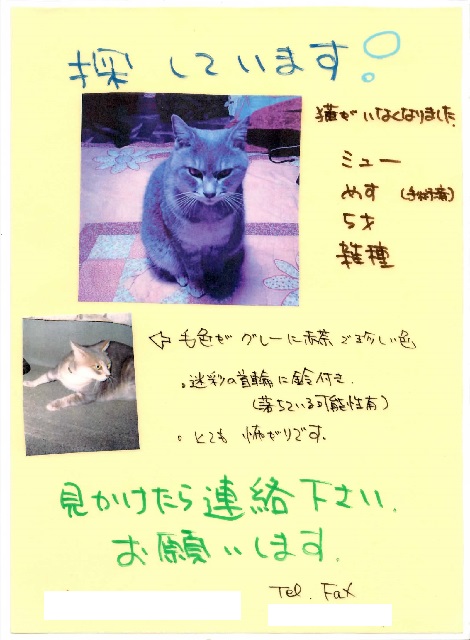 探しています!
猫がいなくなりました
ミュー
めす (手術済)
5才
雑種
毛色がグレーに赤茶で珍しい色
。迷彩の首輪に鈴付き.
(落ちている可能性有)
。とても怖がりです.
見かけたら連絡下さい.
お願いします.
Tel. Fax